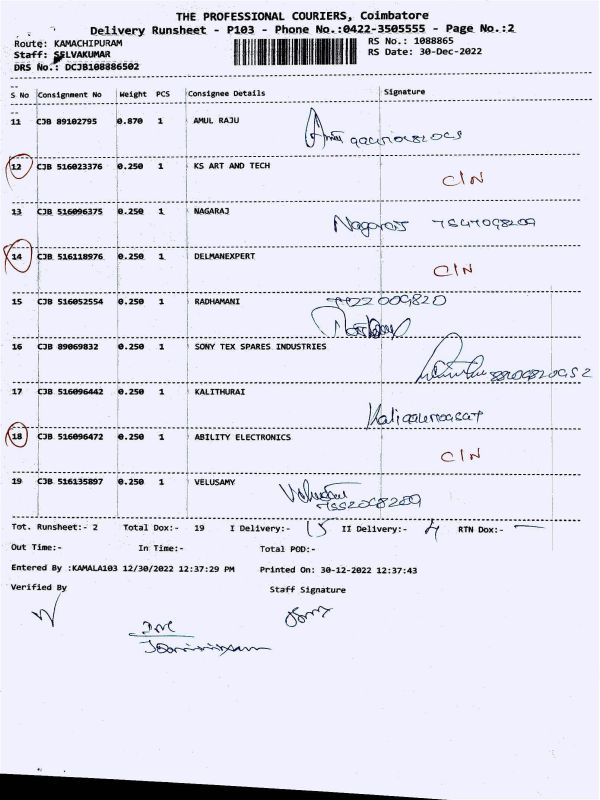 THE PROFESSIONAL COURIERS, Coimbatore
Delivery Runsheet - P103 - Phone No.:0422-3505555 - Page No.:2
Route: KAMACHIPURAM RS No.: 1088865
Staff: SELVAKUMAR RS Date: 30-Dec-2022
DRS No.: DCJB108886502
S No Consignment No Weight PCS Consignee Details Signature
11 CJB 89102795 0.870 1 AMUL RAJU
12 CJB 516023376 0.250 1 KS ART AND TECH C/N
13 CJB 516096375 0.250 1 NAGARAJ Nagaraj
14 CJB 516118976 0.250 1 DELMANEXPERT C/N
15 CJB 516052554 0.250 1 RADHAMANI
16 CJB 89069832 0.250 1 SONY TEX SPARES INDUSTRIES
17 CJB 516096442 0.250 1 KALITHURAI
18 CJB 516096472 0.250 1 ABILITY ELECTRONICS C/N
19 CJB 516135897 0.250 1 VELUSAMY
Tot. Runsheet:- 2 Total Dox:- 19 I Delivery:- 15 II Delivery:- 4 RTN Dox:- —
Out Time:- In Time:- Total POD:-
Entered By :KAMALA103 12/30/2022 12:37:29 PM Printed On: 30-12-2022 12:37:43
Verified By Staff Signature